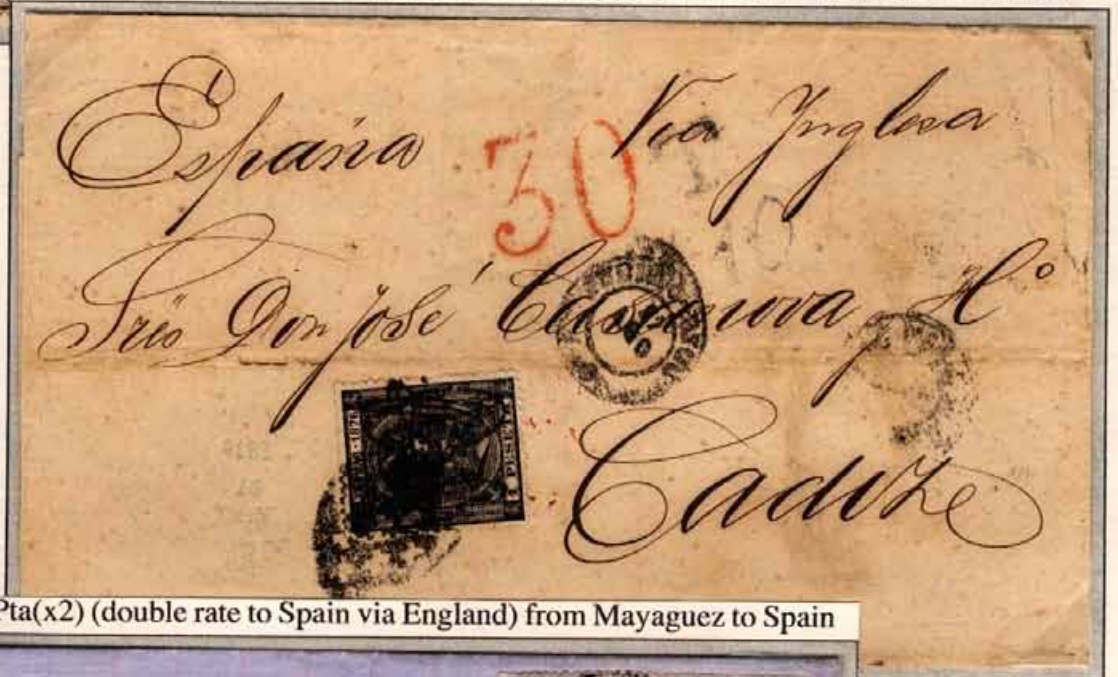 España 30 Via Inglesa
10
Don José Casanova, Ho
Cadiz
1 PESETA
Pta(x2) (double rate to Spain via England) from Mayaguez to Spain